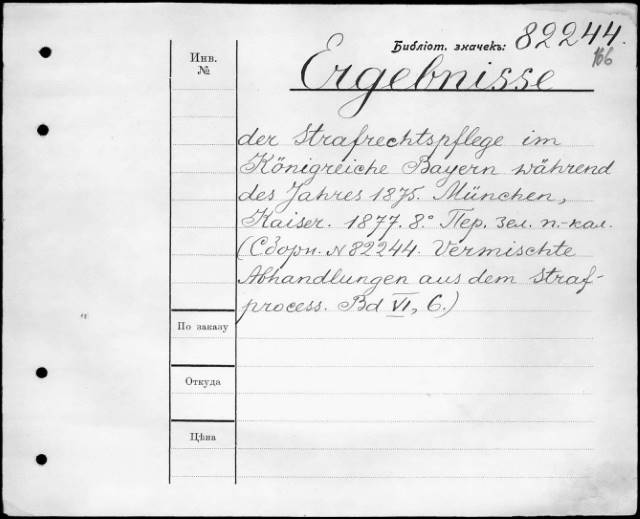 Библіот. значекъ: 82244.
166
Инв.
№
Ergebnisse
der Strafrechtspflege im
Königreiche Bayern während
des Jahres 1875. München,
Kaiser. 1877. 8.° Пер. зел. п.-кал.
(Сборн. № 82244. Vermischte
Abhandlungen aus dem Straf-
process. Bd VI, 6.)
По заказу
Откуда
Цѣна